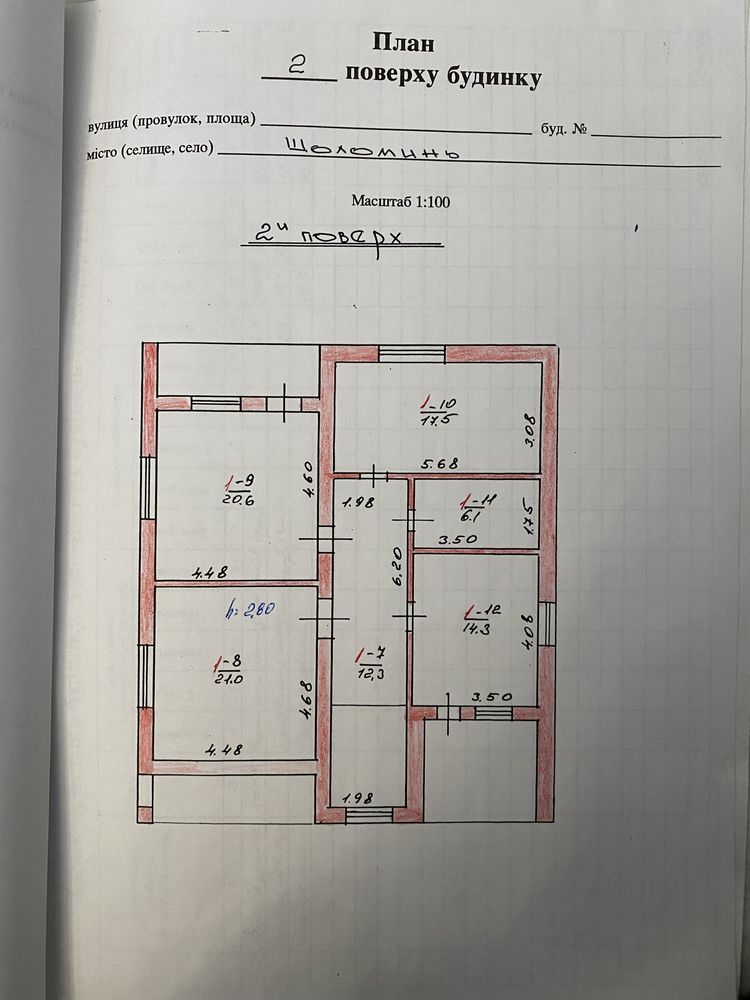 План
2 поверху будинку
вулиця (провулок, площа) буд. №
місто (селище, село) Шоломинь
Масштаб 1:100
2й поверх
1-10
17.5
3.08
5.68
1-9
20.6
4.60
4.48
1.98
1-11
6.1
1.75
3.50
6.20
h=2,80
1-8
21.0
4.68
4.48
1-7
12,3
1.98
1-12
14.3
4.08
3.50